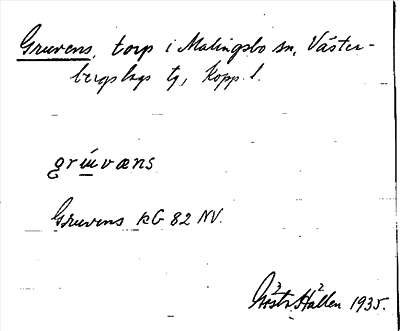 Gruvens, torp i Malingsbo sn, Väster-
bergslags tg, Kopp. l.
grúvæns
Gruvens kG 82 NV.
Gösta Hallen 1935.